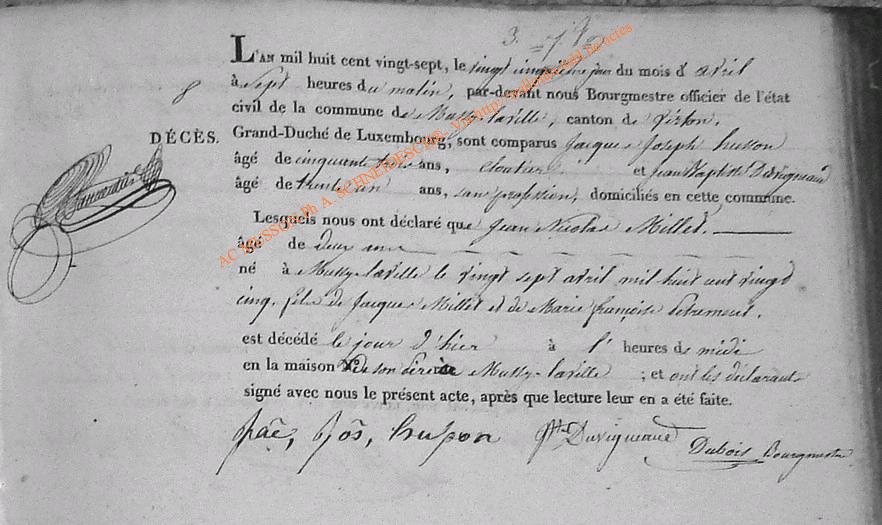 3.
8
L'AN mil huit cent vingt-sept, le vingt cinquieme jour du mois d avril
à sept heures du matin, par-devant nous Bourgmestre officier de l'état
civil de la commune de Mussy-laville, canton de Virton,
DÉCÈS.
Grand-Duché de Luxembourg, sont comparus Jacques Joseph husson
âgé de cinquante trois ans, cloutier et jean Baptiste Duvigneaud
âgé de trente un ans, sans profession, domiciliés en cette commune.
Lesquels nous ont déclaré que Jean Nicolas Millet.
âgé de deux ans
né à Mussy-laville le vingt sept avril mil huit cent vingt
cinq. fils de Jacques Millet et de Marie françoise
est décédé le jour d'hier à l' heures de midi
en la maison de son père à Mussy-laville ; et ont les déclarants
signé avec nous le présent acte, après que lecture leur en a été faite.
jos, husson Duvigneaud Dubois Bourgmestre
AC MUSSON, Ph A. SCHNEIDESCH